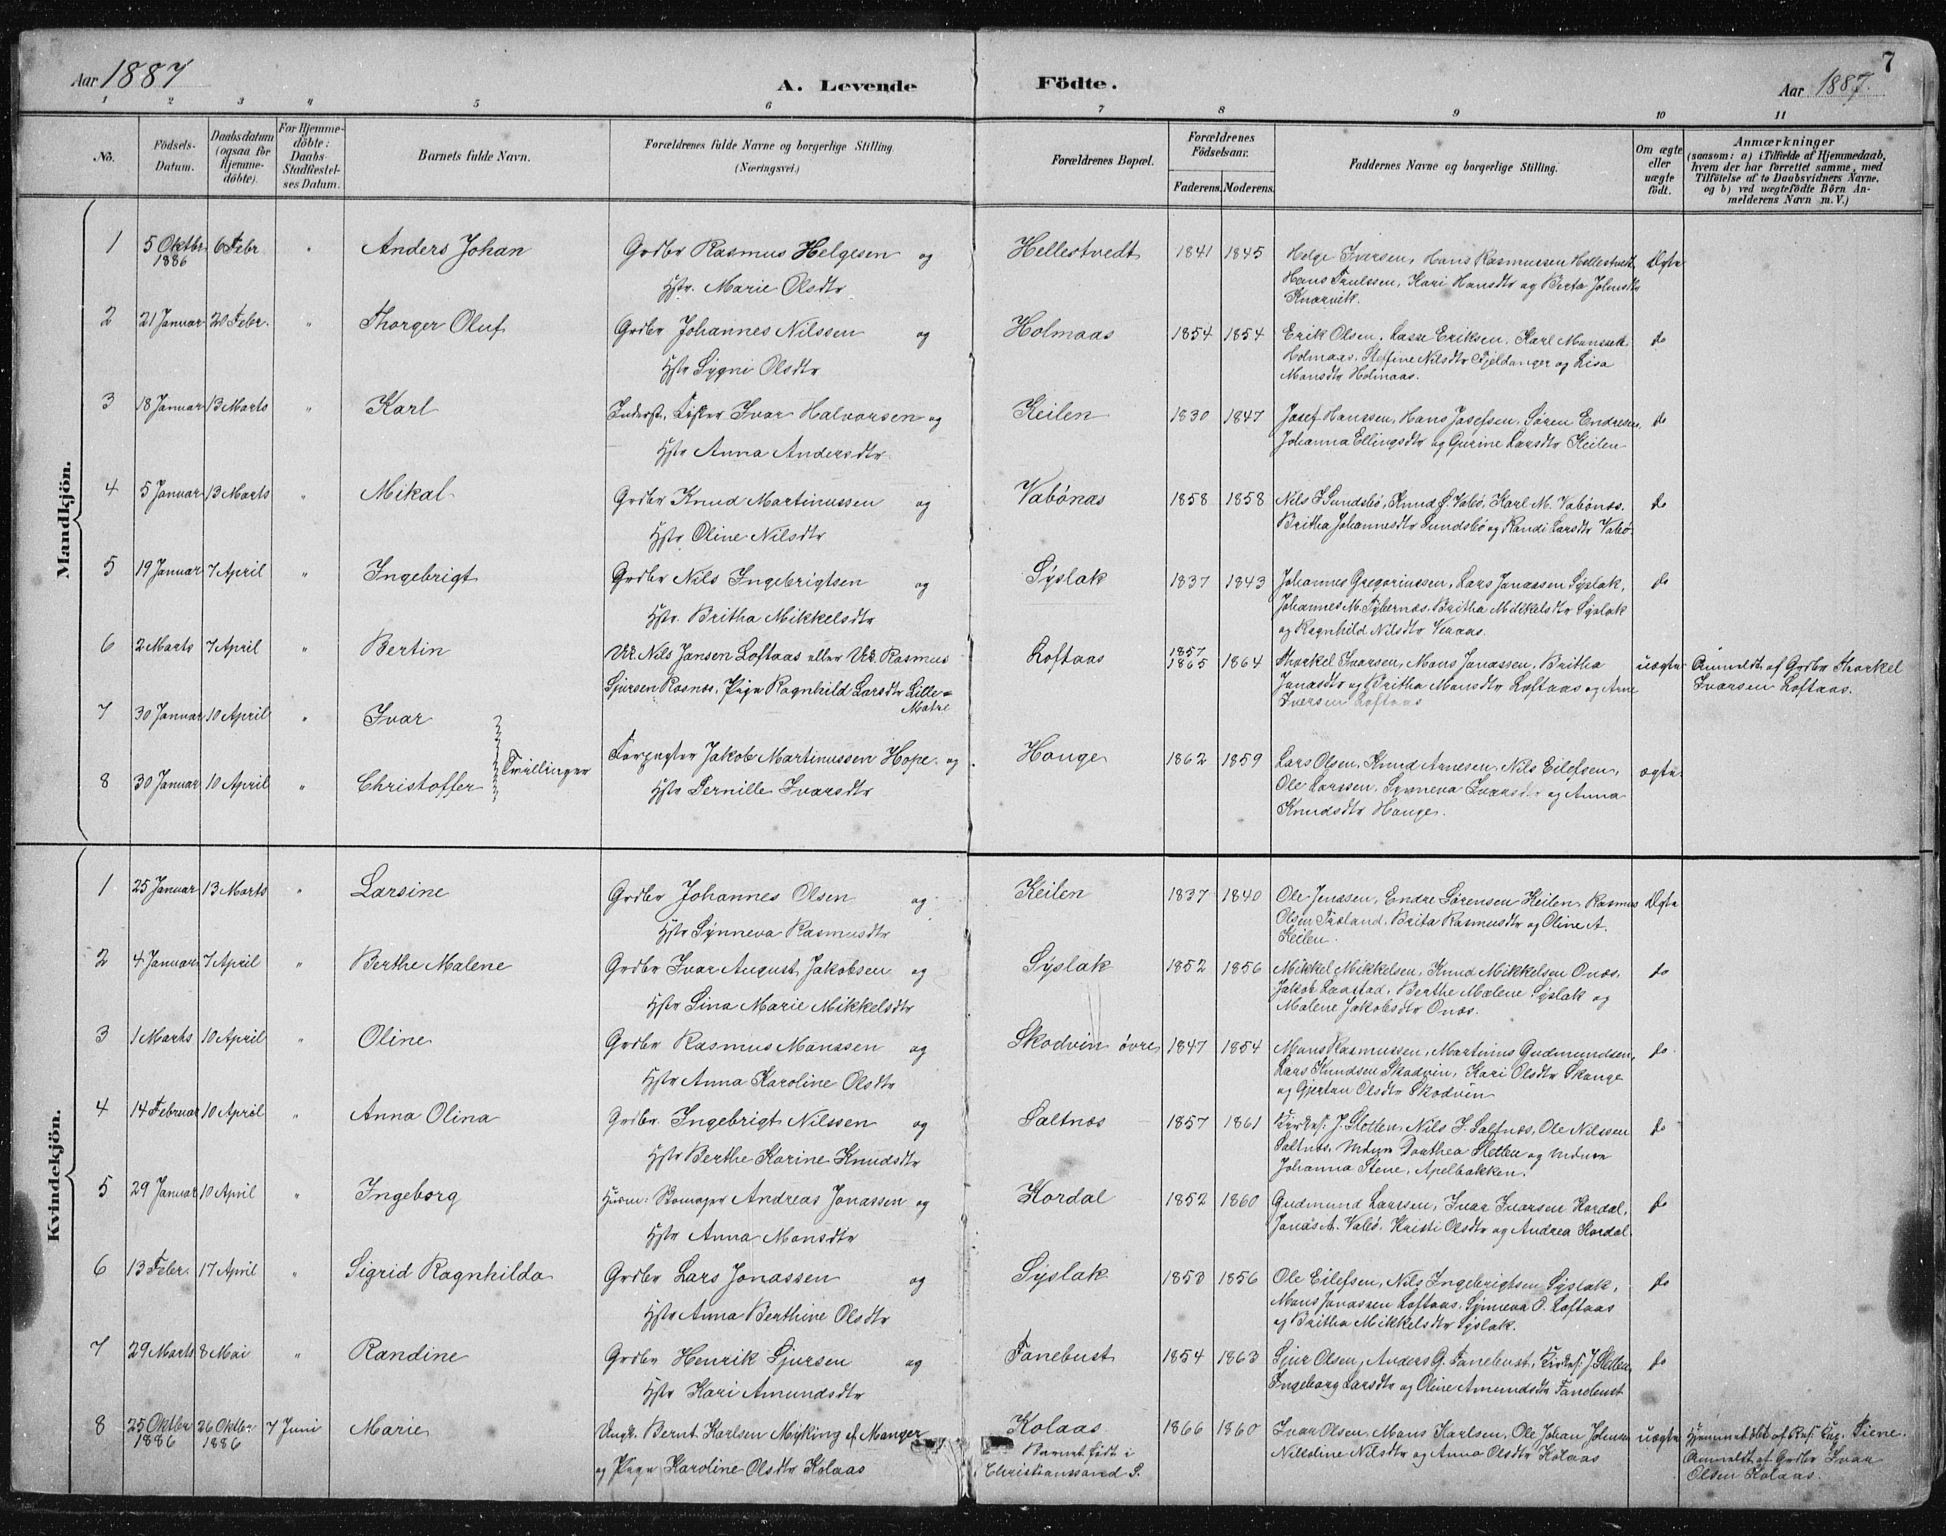 Aar 1887
A. Levende
Födte.
Aar 1887.
7
1 2 3 " 5 6 7 8 9 10 11
No.
Födsels-Datum.
Daabsdatum (ogsaa for Hjemme-döbte).
For Hjemme-döbte: Daabs-Stadfæstel-ses Datum.
Barnets fulde Navn.
Forældrenes fulde Navne og borgerlige Stilling (Næringsvei.)
Forældrenes Bopæl.
Forældrenes Födselsaar.
Faderens. Moderens.
Faddernes Navne og borgerlige Stilling.
Om ægte eller uægte födt.
Anmærkninger
(saasom: a) i Tilfælde af Hjemmedaab, hvem der har forrettet samme, med Tilföielse af to Daabsvidners Navne, og b) ved uægtefödte Börn An-melderens Navn m. V.)
Mandkjön.
1 5 Oktbr 1886 6 Febr " Anders Johan Grdbr Rasmus Helgesen og Hellestvedt 1841 1845 Helge Iversen, Hans Rasmussen Hellestvedt Ægte
Hstr. Marie Olsdtr Hans Paulssen, Kari Hansdtr og Berta Johnsdtr
Knarvik.
2 21 Januar 20 Febr. " Thorger Oluf Grdbr Johannes Nilssen og Holmaas 1854 1854 Erik Olsen, Lasse Eriksen, Karl Monssen do
Hstr Sygni Olsdtr Holmaas, Steffine Nilsdtr Fjeldanger og Lisa
Monsdtr Holmaas.
3 18 Januar 13 Marts " Karl Inderst, Fisker Ivar Halvorsen og Keilen 1830 1847 Josef Hanssen, Hans Josefsen, Søren Endresen, do
Hstr Anna Andersdtr Johanna Ellingsdtr og Gurine Larsdtr Keilen
4 5 Januar 13 Marts " Mikal Grdbr Knud Martinussen og Vabönæs 1858 1858 Nils I Sundsbö, Knud Vabö, Karl M. Vabönæs. do
Hstr Oline Nilsdtr Britha Johannesdtr Sundsbö og Randi Larsdtr Vabö.
5 19 Januar 7 April " Ingebrigt Grdbr Nils Ingebrigtsen og Syslak 1837 1843 Johannes Gregoriussen, Lars Jonassen Syslak, do
Hstr. Britha Mikkelsdtr Johannes M. Britha Mikkelsdtr Syslak
og Ragnhild Nilsdtr
6 2 Marts 7 April " Bertin Uk. Nils Jansen Loftaas eller Uk. Rasmus Loftaas 1857 1865 1864 Thorkel Ivarsen, Mons Jonassen, Britha uægte Anmeldt af Grdbr Thorkel
Sjursen Rosnæs, Pige Ragnhild Larsdtr Lille-Matre Jonasdtr og Britha Monsdtr Loftaas og Arne Ivarsen Loftaas.
Iversen Loftaas
7 30 Januar 10 April " Ivar
Tvillinger Forpagter Jakob Martinussen Hope og Houge 1862 1859 Lars Olsen, Knud Arnesen, Nils Eilefsen, ægte
8 30 Januar 10 April " Christoffer Hstr Pernille Ivarsdtr Ole Larssen, Synneva Ivarsdtr og Anna
Knudsdtr Houge.
Kvindekjön.
1 25 Januar 13 Marts " Larsine Grdbr Johannes Olsen og Keilen 1837 1840 Ole Jonassen, Endre Sørensen Keilen, Rasmus Ægte
Hstr Synneva Rasmusdtr Olsen Brita Rasmusdtr og Oline A.
Keilen.
2 4 Januar 7 April " Berthe Malene Grdbr Ivar August Jakobsen og Syslak 1852 1856 Mikkel Mikkelsen, Knud Mikkelsen Onæs, do
Hstr Lina Marie Mikkelsdtr Jakob Berthe Malene Syslak og
Malene Jakobsdtr Onæs.
3 1 Marts 10 April " Oline Grdbr Rasmus Monssen og Skodvin øvre 1847 1854 Mons Rasmussen, Martinus Gudmundsen, do
Hstr Anna Karoline Olsdtr Lars Knudsen Skodvin, Kari Olsdtr Skauge
og Gjertau Olsdtr Skodvin
4 14 Februar 10 April " Anna Olina Grdbr. Ingebrigt Nilssen og Saltnæs 1857 1861 Kirkes. J. Sletten, Nils I. Saltnæs, Ole Nilssen do
Hstr Berthe Karine Knudsdtr Saltnæs, Dorthea Sletten og
Johanna Stene, Apelbakken.
5 29 Januar 10 April " Ingeborg Husm: Skomager Andreas Jonassen og Kordal 1852 1860 Gudmund Larssen, Ivar Ivarsen Kordal, do
Hstr Anna Monsdtr Jonas A. Vabö, Kristi Olsdtr og Andrea Kordal.
6 13 Febr. 17 April " Sigrid Ragnhilda Grdbr Lars Jonassen og Syslak 1856 Ole Eilefsen, Nils Ingebrigtsen Syslak, do
Hstr Anna Berthine Olsdtr Mons Jonassen Loftaas, Synneva O. Loftaas
og Britha Mikkelsdtr Syslak.
7 29 Marts 8 Mai " Randine Grdbr Henrik Sjursen og Tanebust 1854 1863 Sjur Olsen, Anders G. Tanebust, Kirkes. J Sletten, do
Hstr Kari Amundsdtr Ingeborg Larsdtr og Oline Amundsdtr Tanebust
8 25 Oktbr 1886 26 Oktbr. 1886 7 Juni Marie Ungk. Bernt Karlsen Myking af Manger Kolaas 1866 1860 Ivar Olsen, Mons Karlsen, Ole Johan Johnsen uægte Hjemmedöbt af Kap. Siene.
og Pige Karoline Olsdtr Kolaas Barnet födt i Nilsoline Nilsdtr og Anna Olsdtr Kolaas Anmeldt af Grdbr Ivar
Christianssand S. Olsen Kolaas.